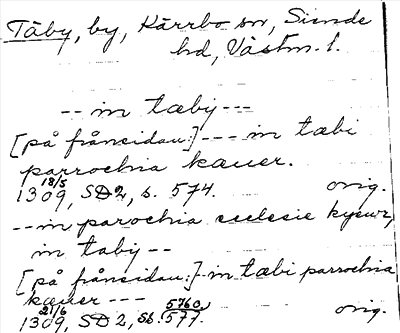 Täby, by, Kärrbo sn, Siende
hd, Västm. l.
-- in tæbij ---
[på frånsidan:] --- in tæbi
parrochia kæuer.
1309 18/5, SD 2, s. 574. orig.
-- in parochia ecclesie kyeur,
in taby --
[på frånsidan:] - in tæbi parrochia
kæuer ---
1309 21/6, SD 2, sb. 577. 5760 orig.